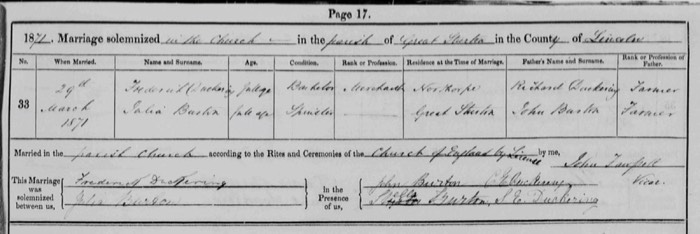 Page 17.
1871. Marriage solemnized in the Church in the parish of Great Sturton in the County of Lincoln
No. When Married. Name and Surname. Age. Condition. Rank or Profession. Residence at the Time of Marriage. Father's Name and Surname. Rank or Profession of Father.
33 29th March 1871
Frederick Duckering full age Bachelor Merchant Northorpe Richard Duckering Farmer
Julia Burton full age Spinster Great Sturton John Burton Farmer
Married in the parish Church according to the Rites and Ceremonies of the Church of England by Licence by me,
John Vicar
This Marriage was solemnized between us, Frederick Duckering
Burton
In the Presence of us, John Burton Duckering
Burton, S. E. Duckering